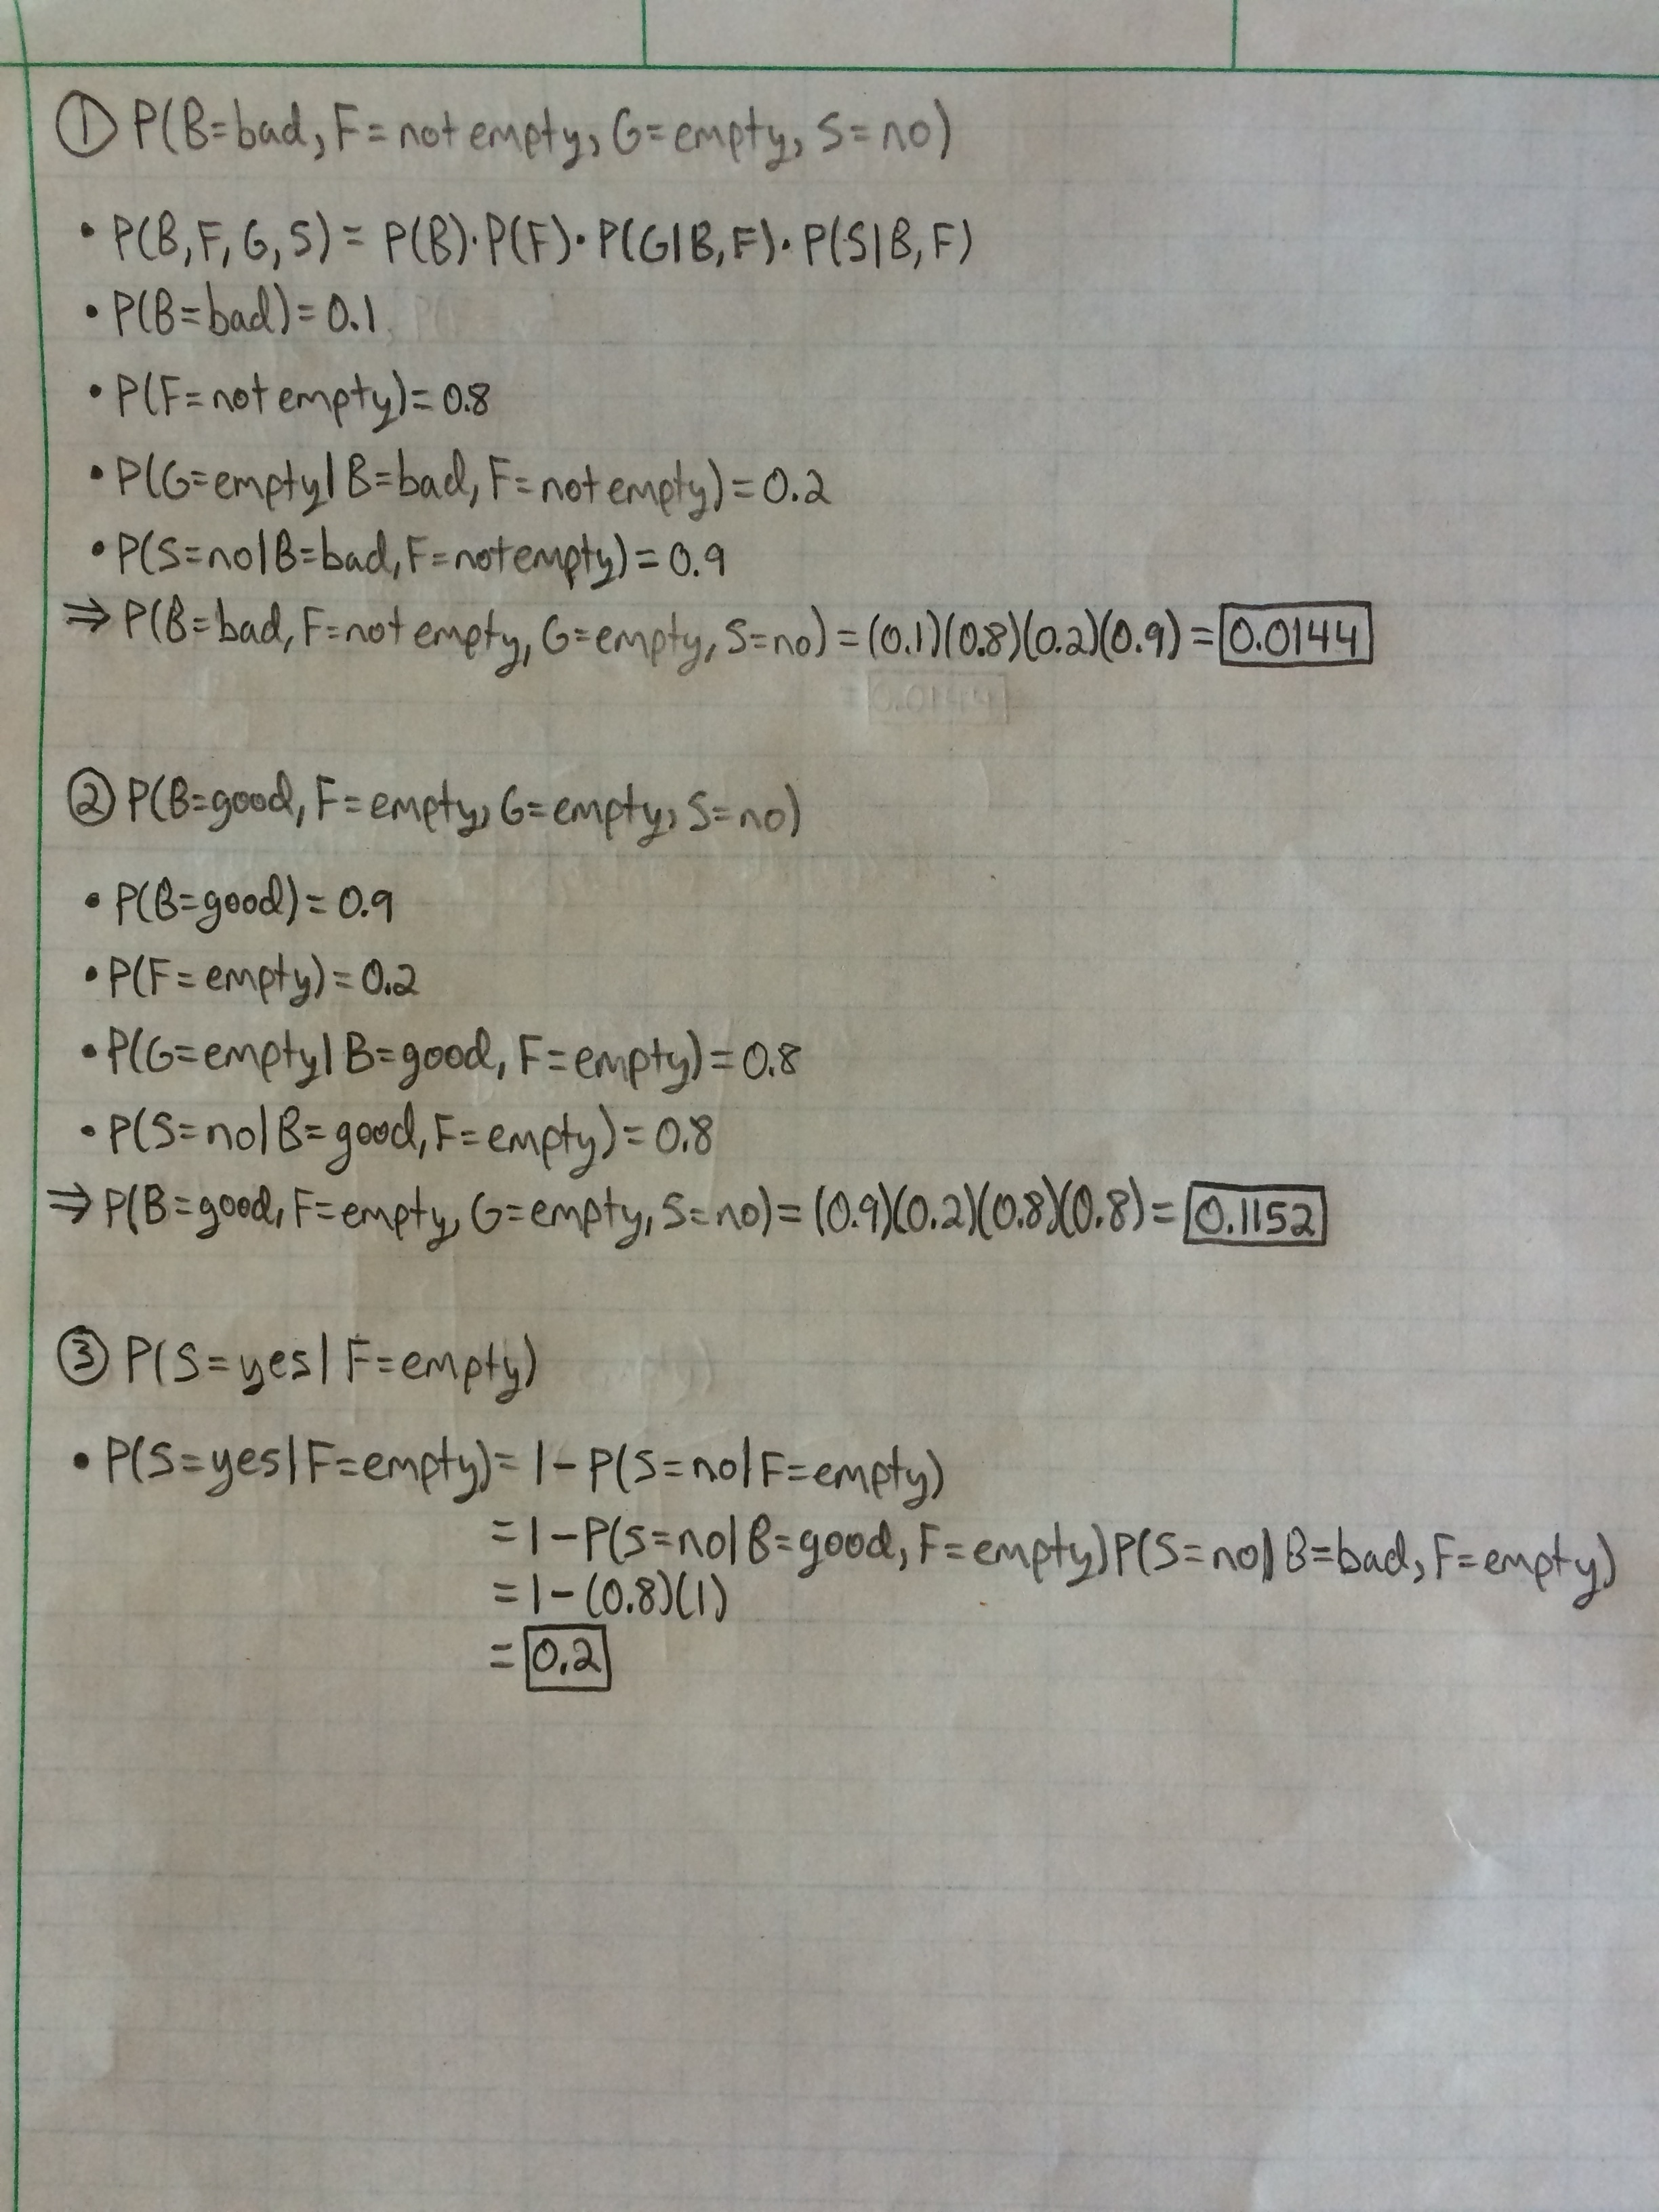 ① P(B=bad, F=not empty, G=empty, S=no)
• P(B,F,G,S) = P(B)·P(F)·P(G|B,F)·P(S|B,F)
• P(B=bad)=0.1
• P(F=not empty)=0.8
• P(G=empty|B=bad, F=not empty)=0.2
• P(S=no|B=bad, F=not empty)=0.9
⇒ P(B=bad, F=not empty, G=empty, S=no)=(0.1)(0.8)(0.2)(0.9)=0.0144
② P(B=good, F=empty, G=empty, S=no)
• P(B=good)=0.9
• P(F=empty)=0.2
• P(G=empty|B=good, F=empty)=0.8
• P(S=no|B=good, F=empty)=0.8
⇒ P(B=good, F=empty, G=empty, S=no)=(0.9)(0.2)(0.8)(0.8)=0.1152
③ P(S=yes|F=empty)
• P(S=yes|F=empty)=1-P(S=no|F=empty)
=1-P(S=no|B=good, F=empty)P(S=no|B=bad, F=empty)
=1-(0.8)(1)
=0.2